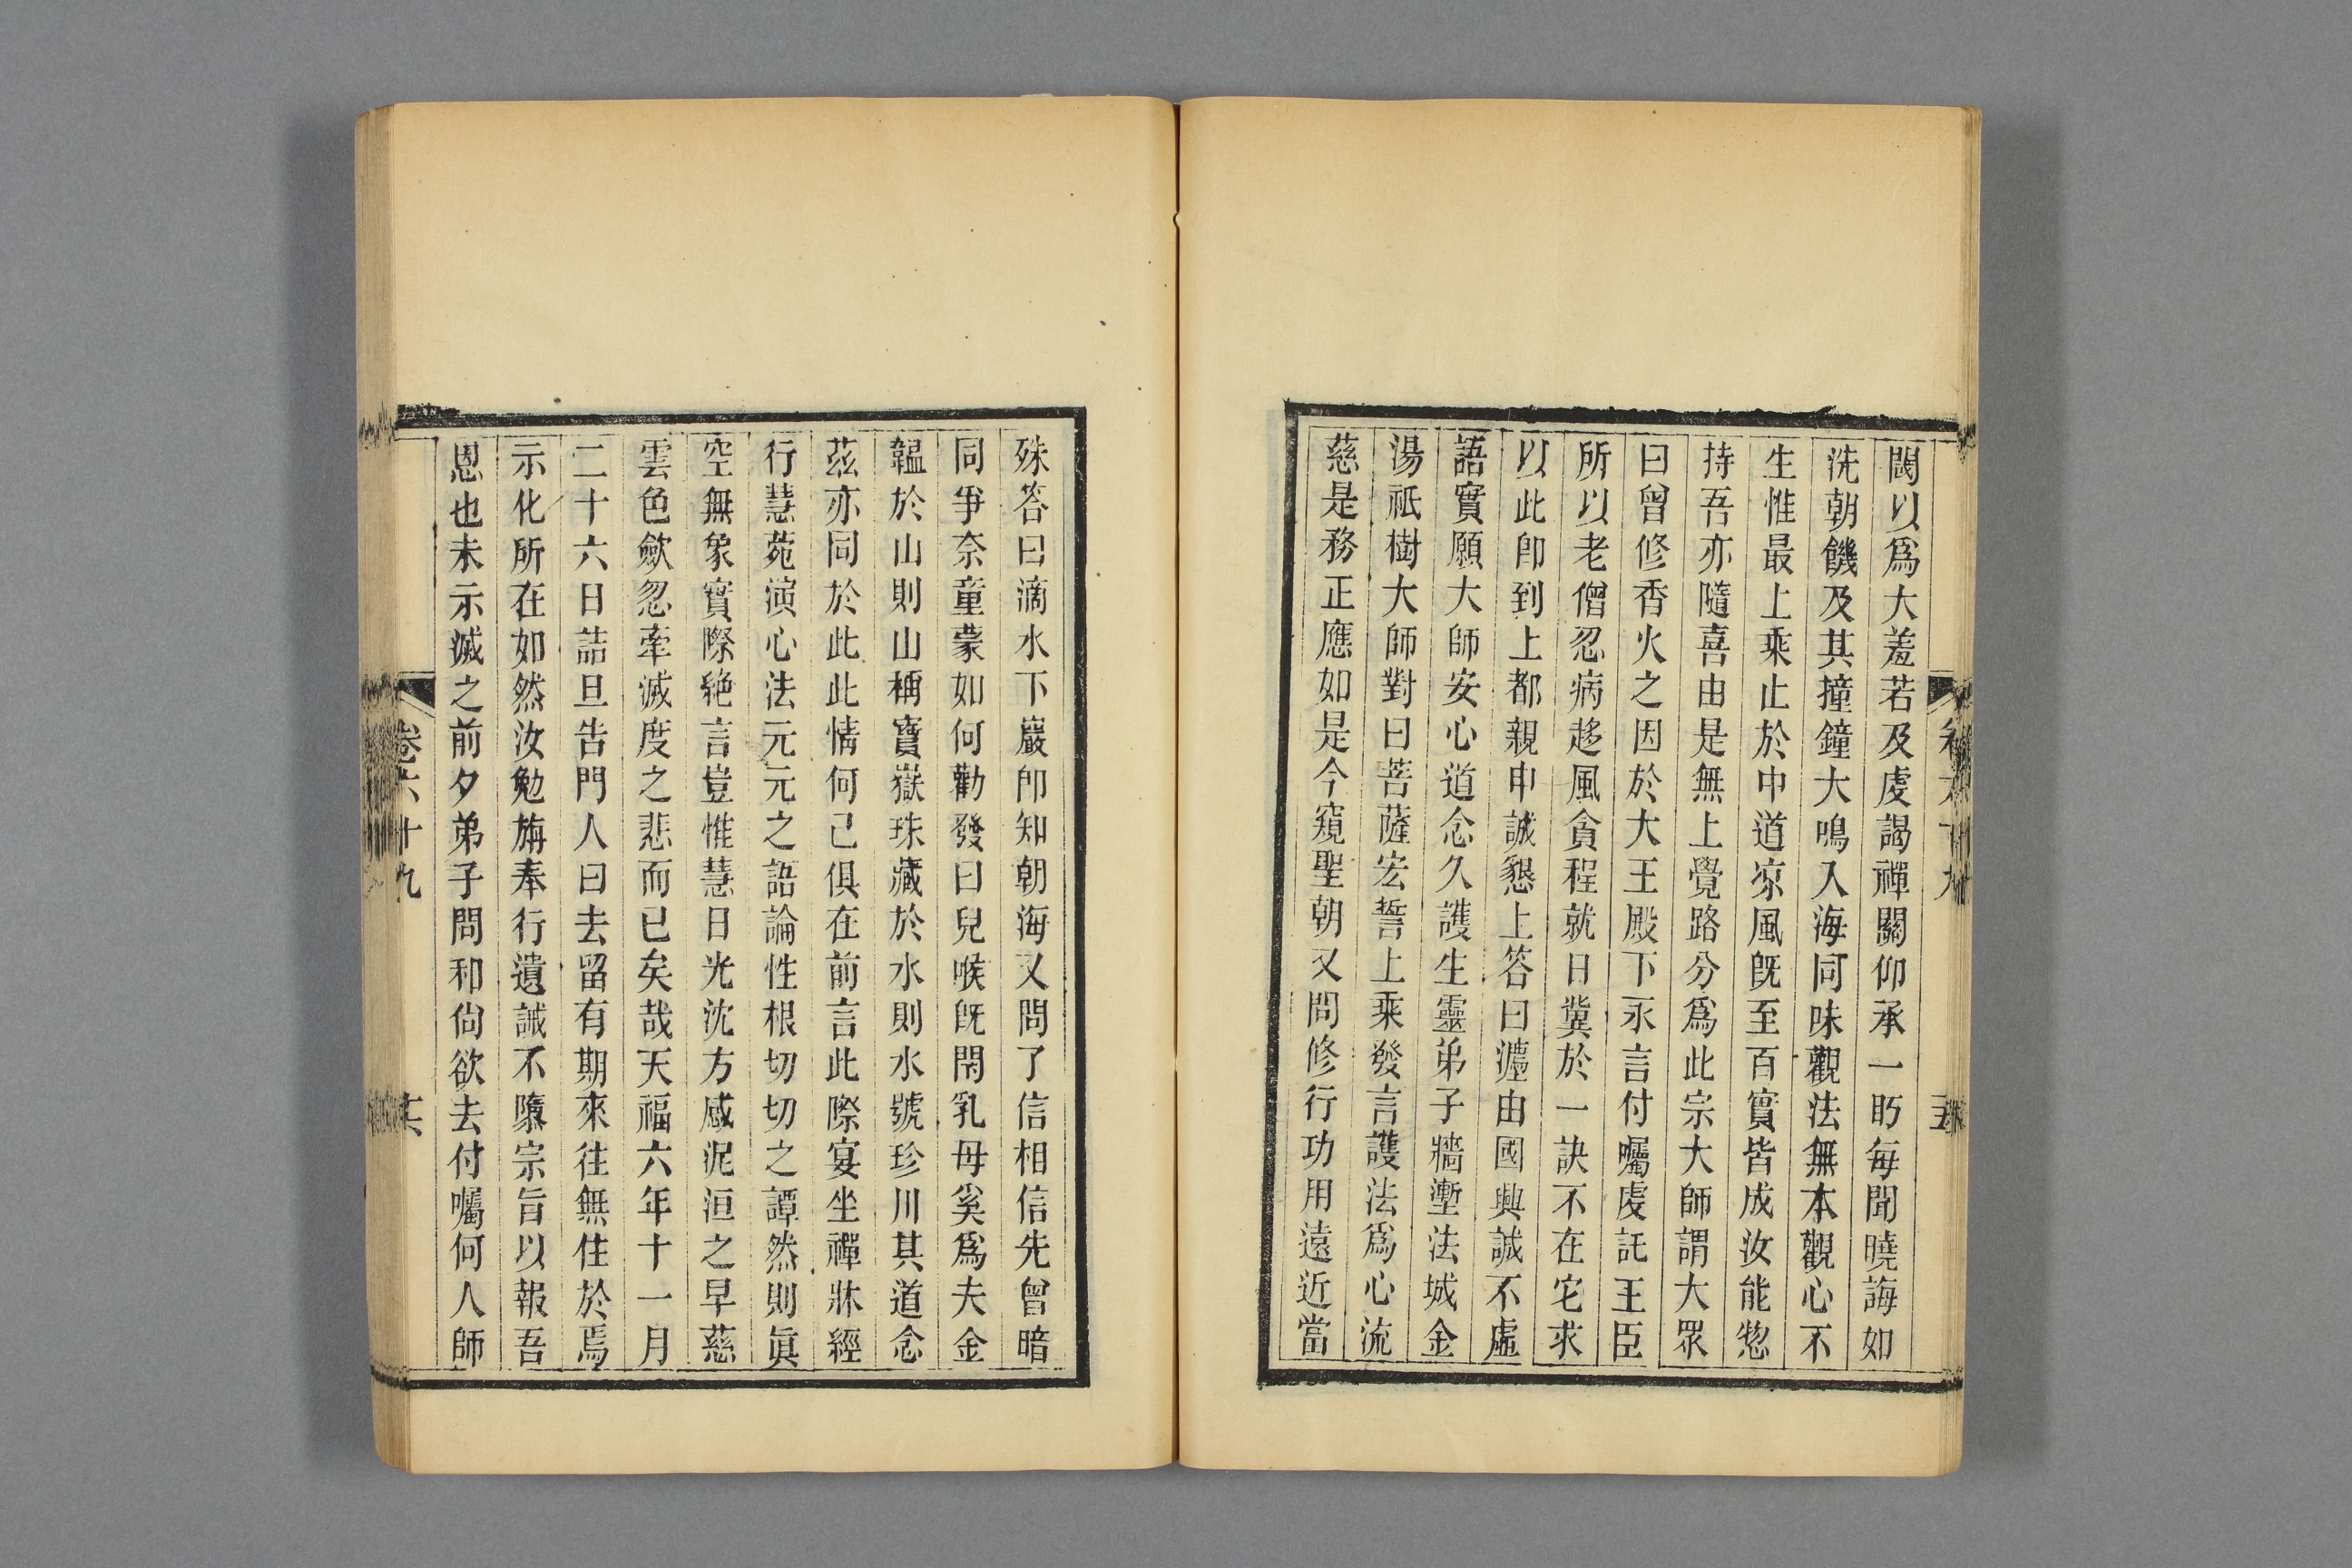 閾以爲大羞若及虔謁禪關仰承一眄每聞曉誨如
洗朝饑及其撞鐘大鳴入海同味觀法無本觀心不
生惟最上乘止於中道凉風旣至百實皆成汝能惣
持吾亦隨喜由是無上覺路分爲此宗大師謂大眾
曰曾修香火之因於大王殿下永言付囑虔託王臣
所以老僧忍病趍風貪程就日冀於一訣不在宅求
以此卽到上都親申誠懇上答曰灋由國興誠不虛
語實願大師安心道念久護生靈弟子牆塹法城金
湯祇樹大師對曰菩薩宏誓上乘發言護法爲心流
慈是務正應如是今窺聖朝又問修行功用遠近當
殊答曰滴水下巖卽知朝海又問了信相信先曾暗
同爭奈童蒙如何勸發曰兒喉旣閉乳母奚爲夫金
韞於山則山稱寶嶽珠藏於水則水號珍川其道念
茲亦同於此此情何已俱在前言此際宴坐禪牀經
行慧苑演心法元元之語論性根切切之譚然則眞
空無象實際絕言豈惟慧日光沈方感泥洹之早慈
雲色歛忽牽滅度之悲而已矣哉天福六年十一月
二十六日詰旦告門人曰去留有期來往無住於焉
示化所在如然汝勉旃奉行遺誡不隳宗旨以報吾
恩也未示滅之前夕弟子問和尙欲去付囑何人師
卷六十九